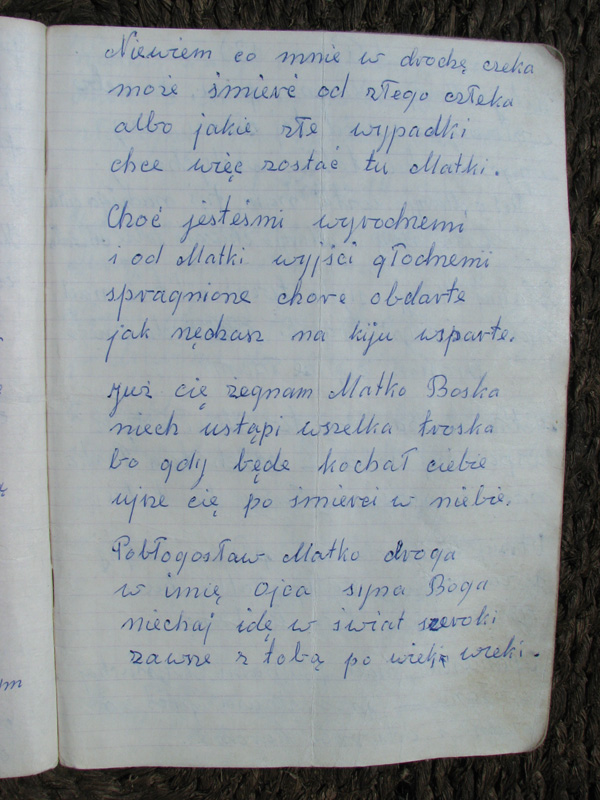 Niewiem co mnie w drodzę czeka
może śmierć od złego człeka
albo jakie złe wypadki
chce więc zostać tu Matki.
Choć jesteśmi wyrodnemi
i od Matki wyjści głodnemi
spragnione chore obdarte
jak nędzasz na kiju wsparte.
już cię żegnam Matko Boska
niech ustąpi wszelka troska
bo gdy będe kochał ciebie
ujże cię po śmierci w niebie.
Pobłogosław Matko droga
w imię Ojca syna Boga
niechaj idę w świat szeroki
zawsze z tobą po wieki wieki.
m